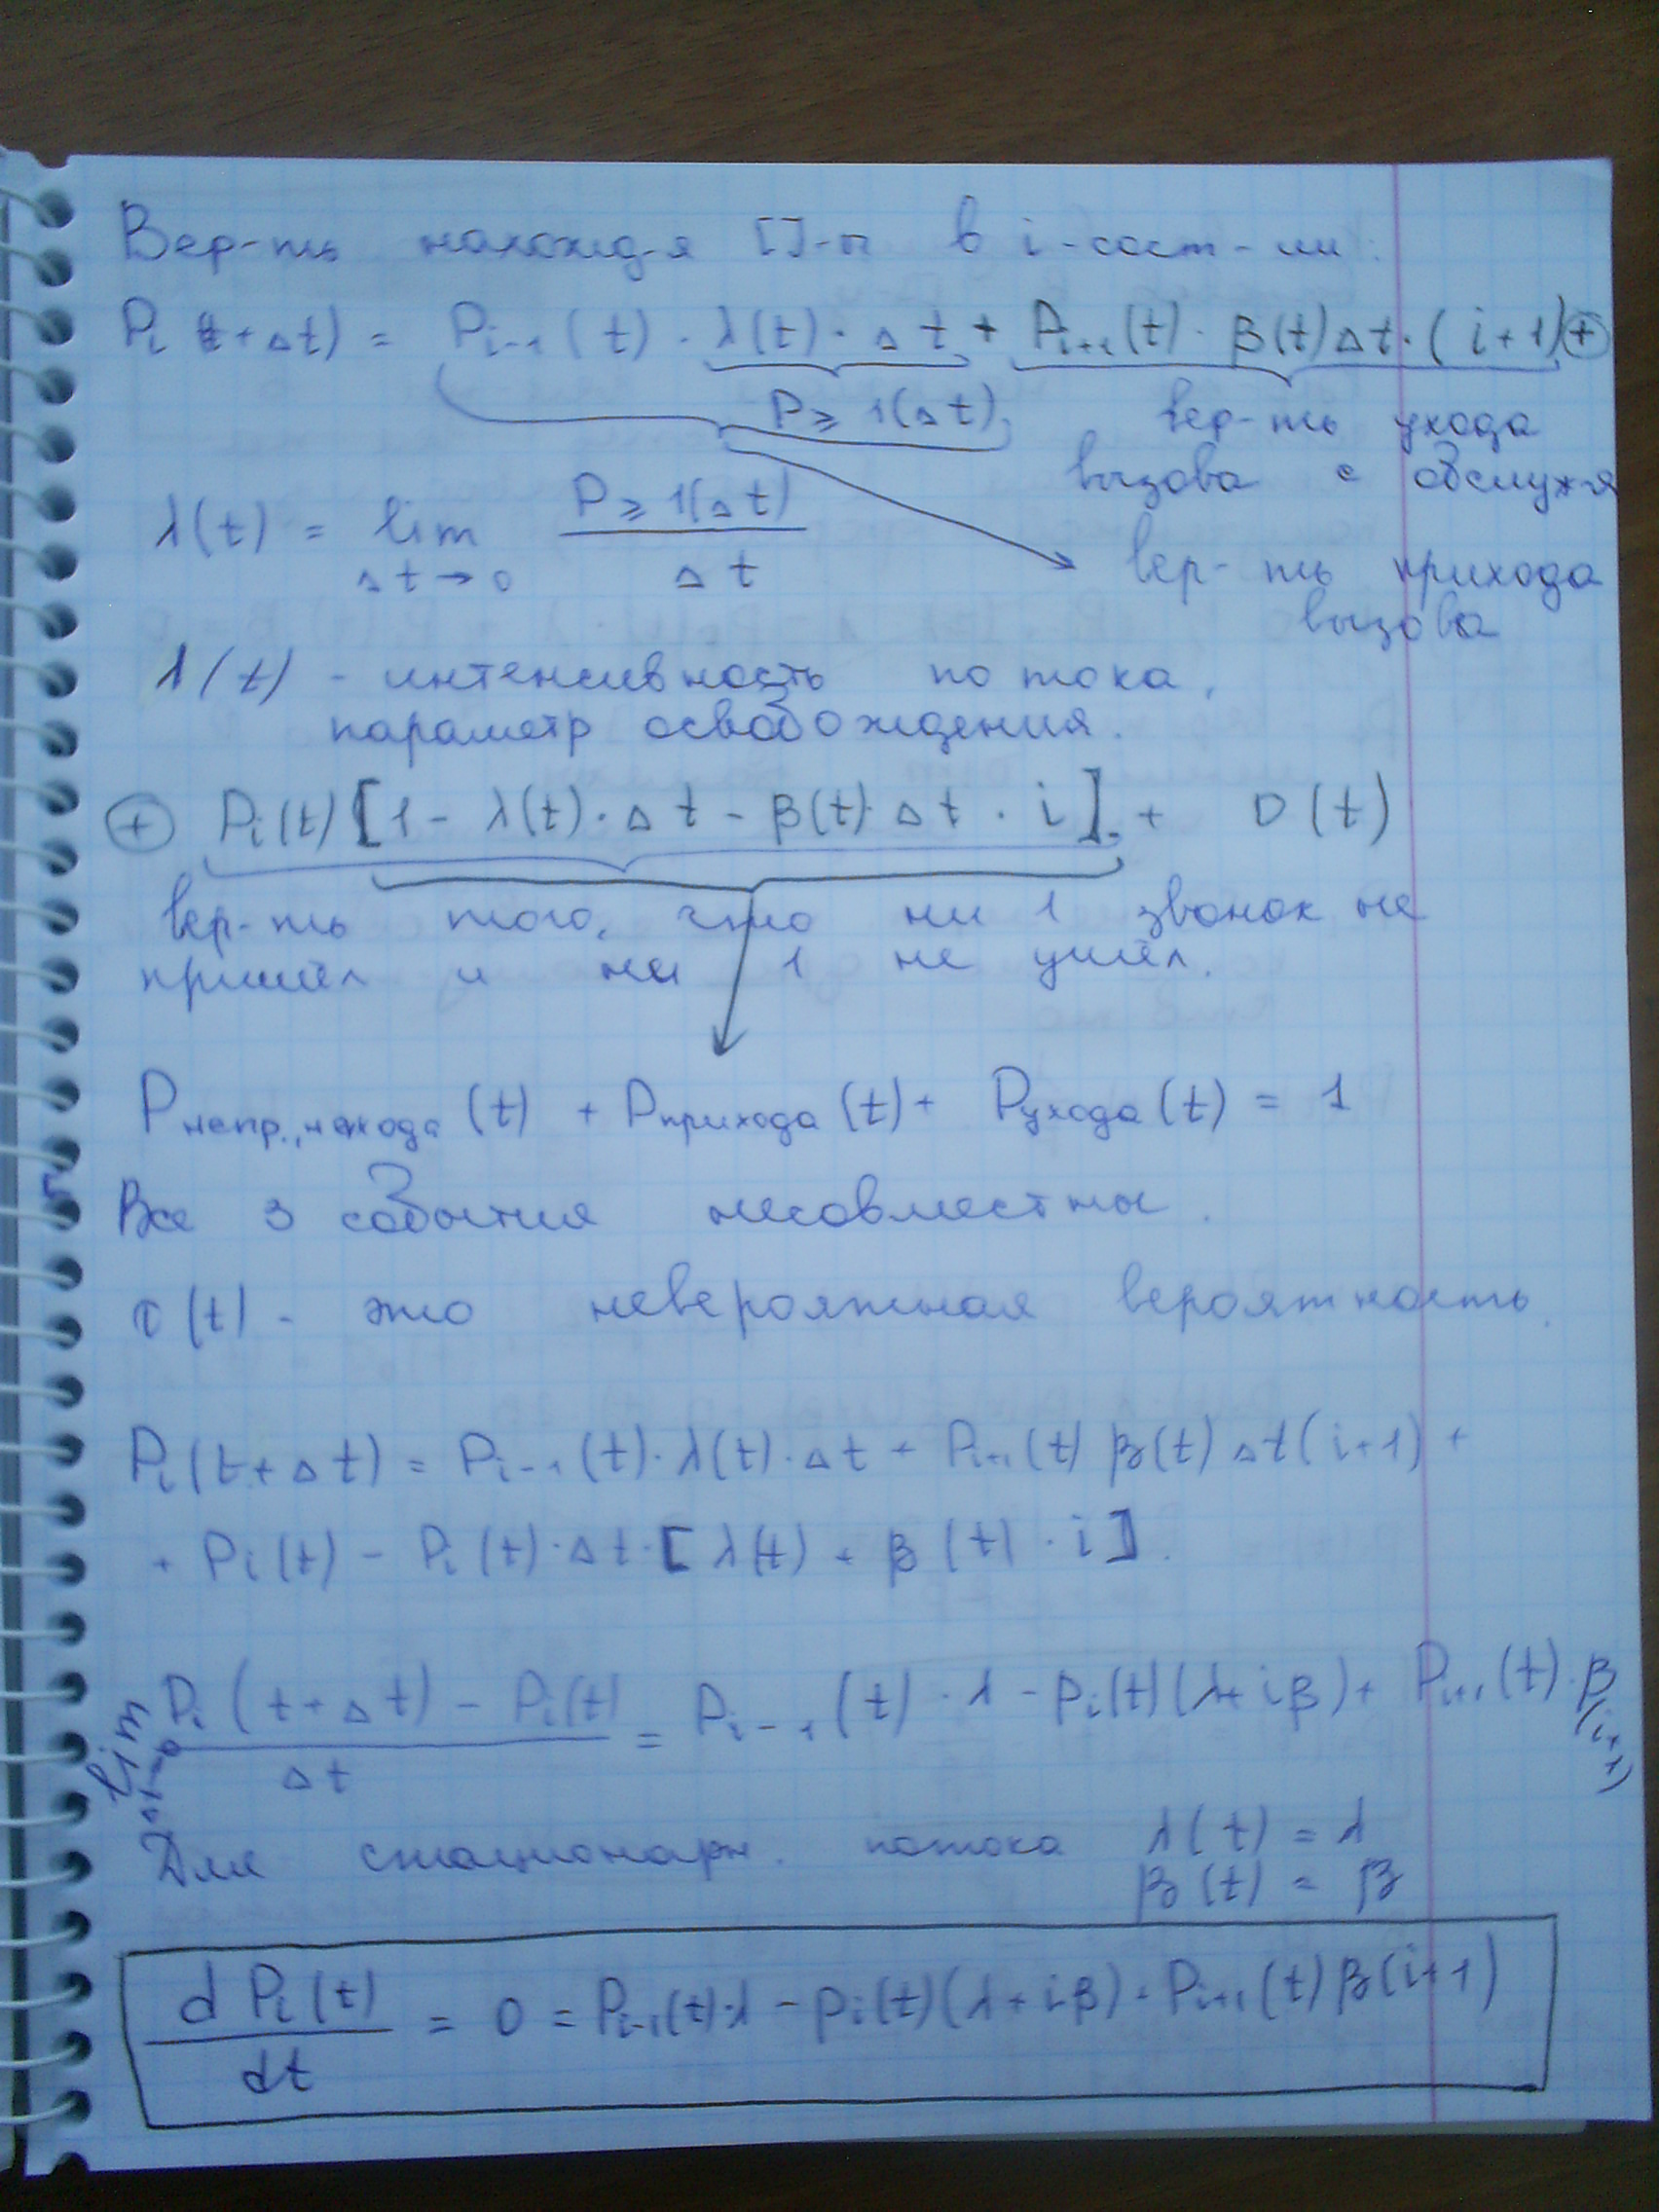 Вер-ть нахожд-я []-ы в i-сост-ии:
Pi (t+Δt) = Pi-1 (t) · λ(t) · Δt + Pi+1(t) · β(t)Δt·(i+1) ⊕
P≥1(Δt)
вер-ть ухода
вызова с обслуж-я
λ(t) = lim Δt→0 P≥1(Δt) / Δt
вер-ть прихода
вызова
λ(t) - интенсивность потока,
параметр освобождения.
⊕ Pi(t) [1 - λ(t)·Δt - β(t)·Δt · i] + O(t)
вер-ть того, что ни 1 звонок не
пришёл и ни 1 не ушёл.
P (t) + Pприхода (t) + Pухода (t) = 1
Все 3 события несовместны.
(t) - это невероятная вероятность.
Pi (t+Δt) = Pi-1 (t)·λ(t)·Δt + Pi+1 (t) β(t) Δt(i+1) +
+ Pi(t) - Pi (t)·Δt·[λ(t) + β(t)·i].
lim Δt→0 Pi (t+Δt) - Pi(t) / Δt = Pi-1 (t)·λ - Pi(t)(λ+iβ) + Pi+1 (t)·β(i+1)
Для стационарн. потока λ(t) = λ
β(t) = β
dPi(t) / dt = 0 = Pi-1(t)·λ - Pi(t)(λ+iβ) - Pi+1(t)β(i+1)